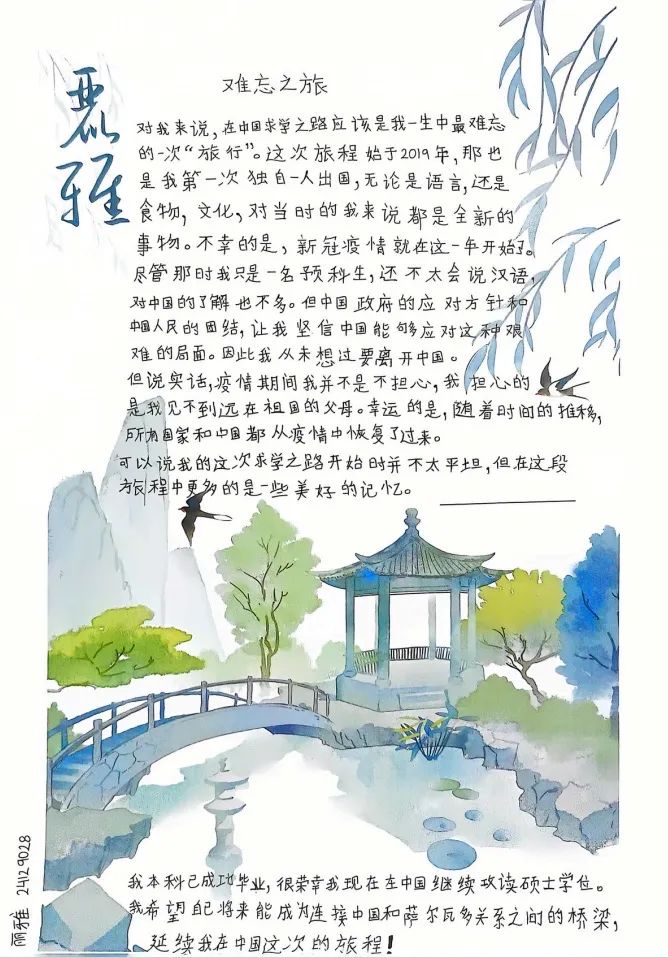 麗雅
难忘之旅
对我来说,在中国求学之路应该是我一生中最难忘
的一次“旅行”。这次旅程始于2019年,那也
是我第一次独自一人出国,无论是语言,还是
食物,文化,对当时的我来说都是全新的
事物。不幸的是,新冠疫情就在这一年开始了。
尽管那时我只是一名预科生,还不太会说汉语,
对中国的了解也不多。但中国政府的应对方针和
中国人民的团结,让我坚信中国能够应对这种艰
难的局面。因此我从未想过要离开中国。
但说实话,疫情期间我并不是不担心,我担心的
是我见不到远在祖国的父母。幸运的是,随着时间的推移,
所有国家和中国都从疫情中恢复了过来。
可以说我的这次求学之路开始时并不太平坦,但在这段
旅程中更多的是一些美好的记忆。
我本科已成功毕业,很荣幸我现在在中国继续攻读硕士学位。
我希望自己将来能成为连接中国和萨尔瓦多关系之间的桥梁,
延续我在中国这次的旅程!
丽雅 24129028